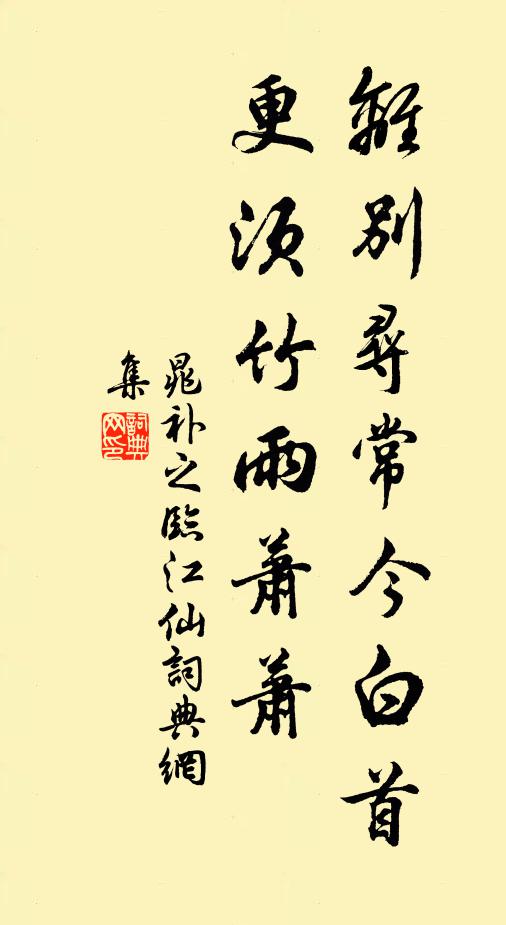 離別尋常今白首
更須竹雨蕭蕭
晁补之臨江仙詞典網
集
詞典
网印